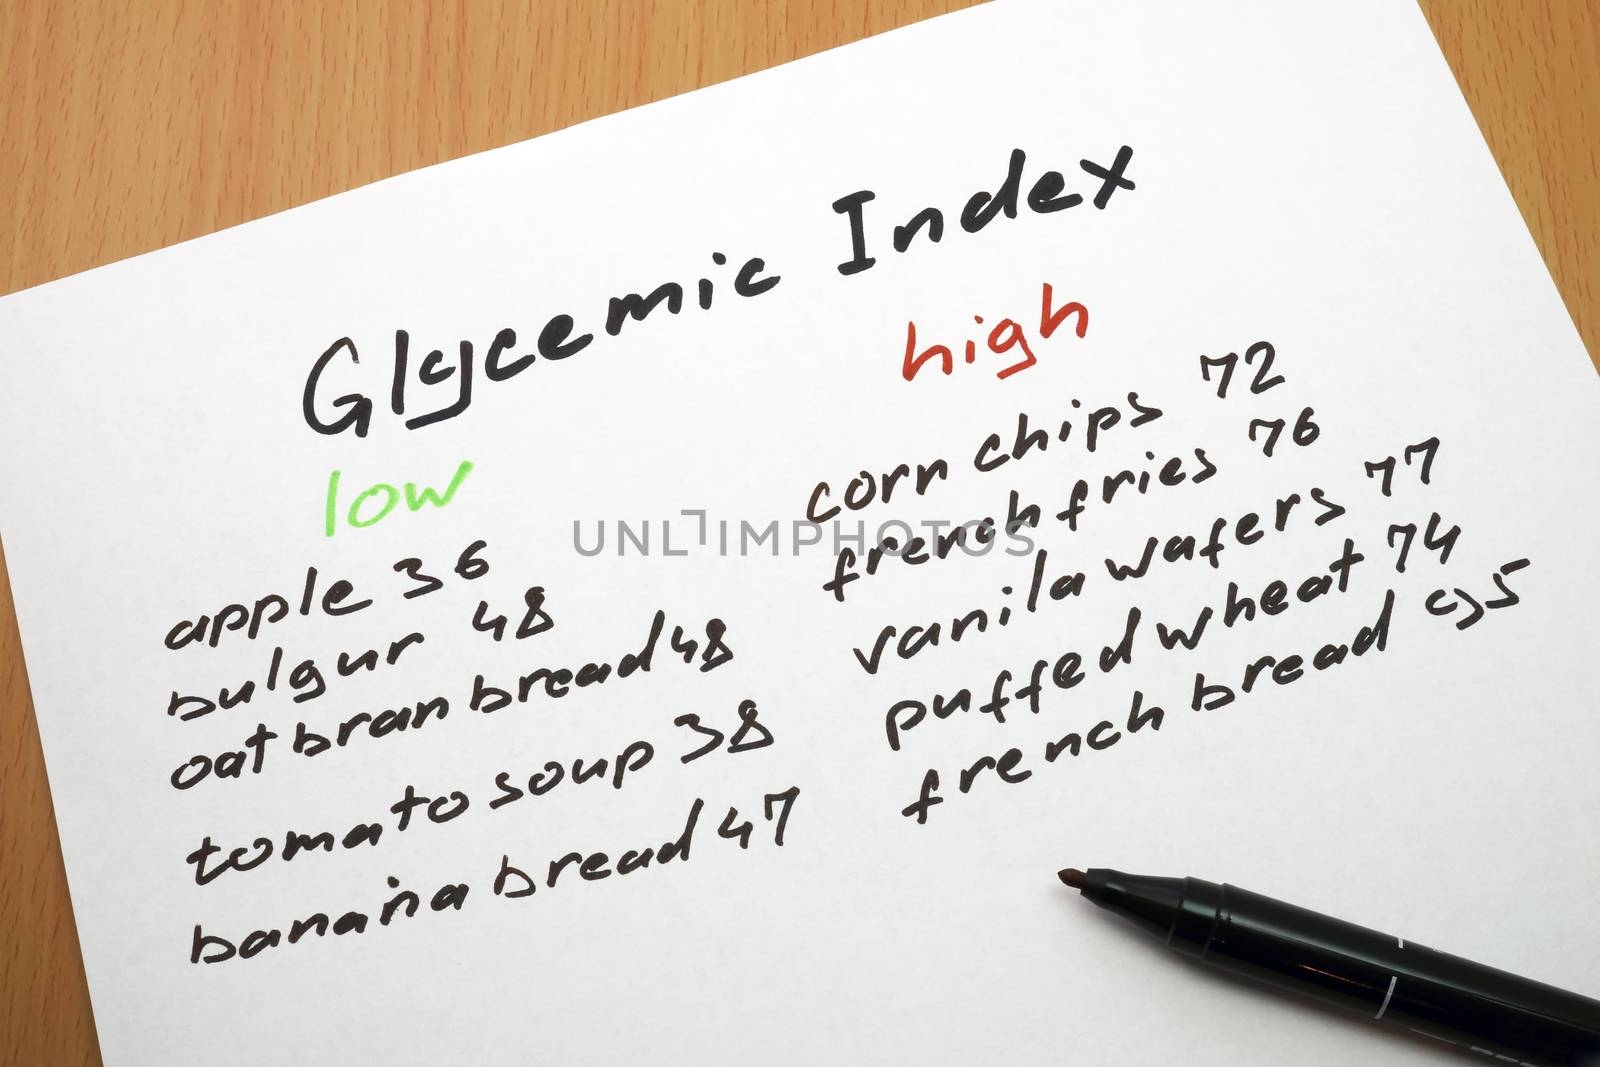 Glycemic Index
low
apple 36
bulgur 48
oat bran bread 48
tomato soup 38
banana bread 47
high
corn chips 72
french fries 76
vanila wafers 77
puffed wheat 74
french bread 95
UNLIMPHOTOS